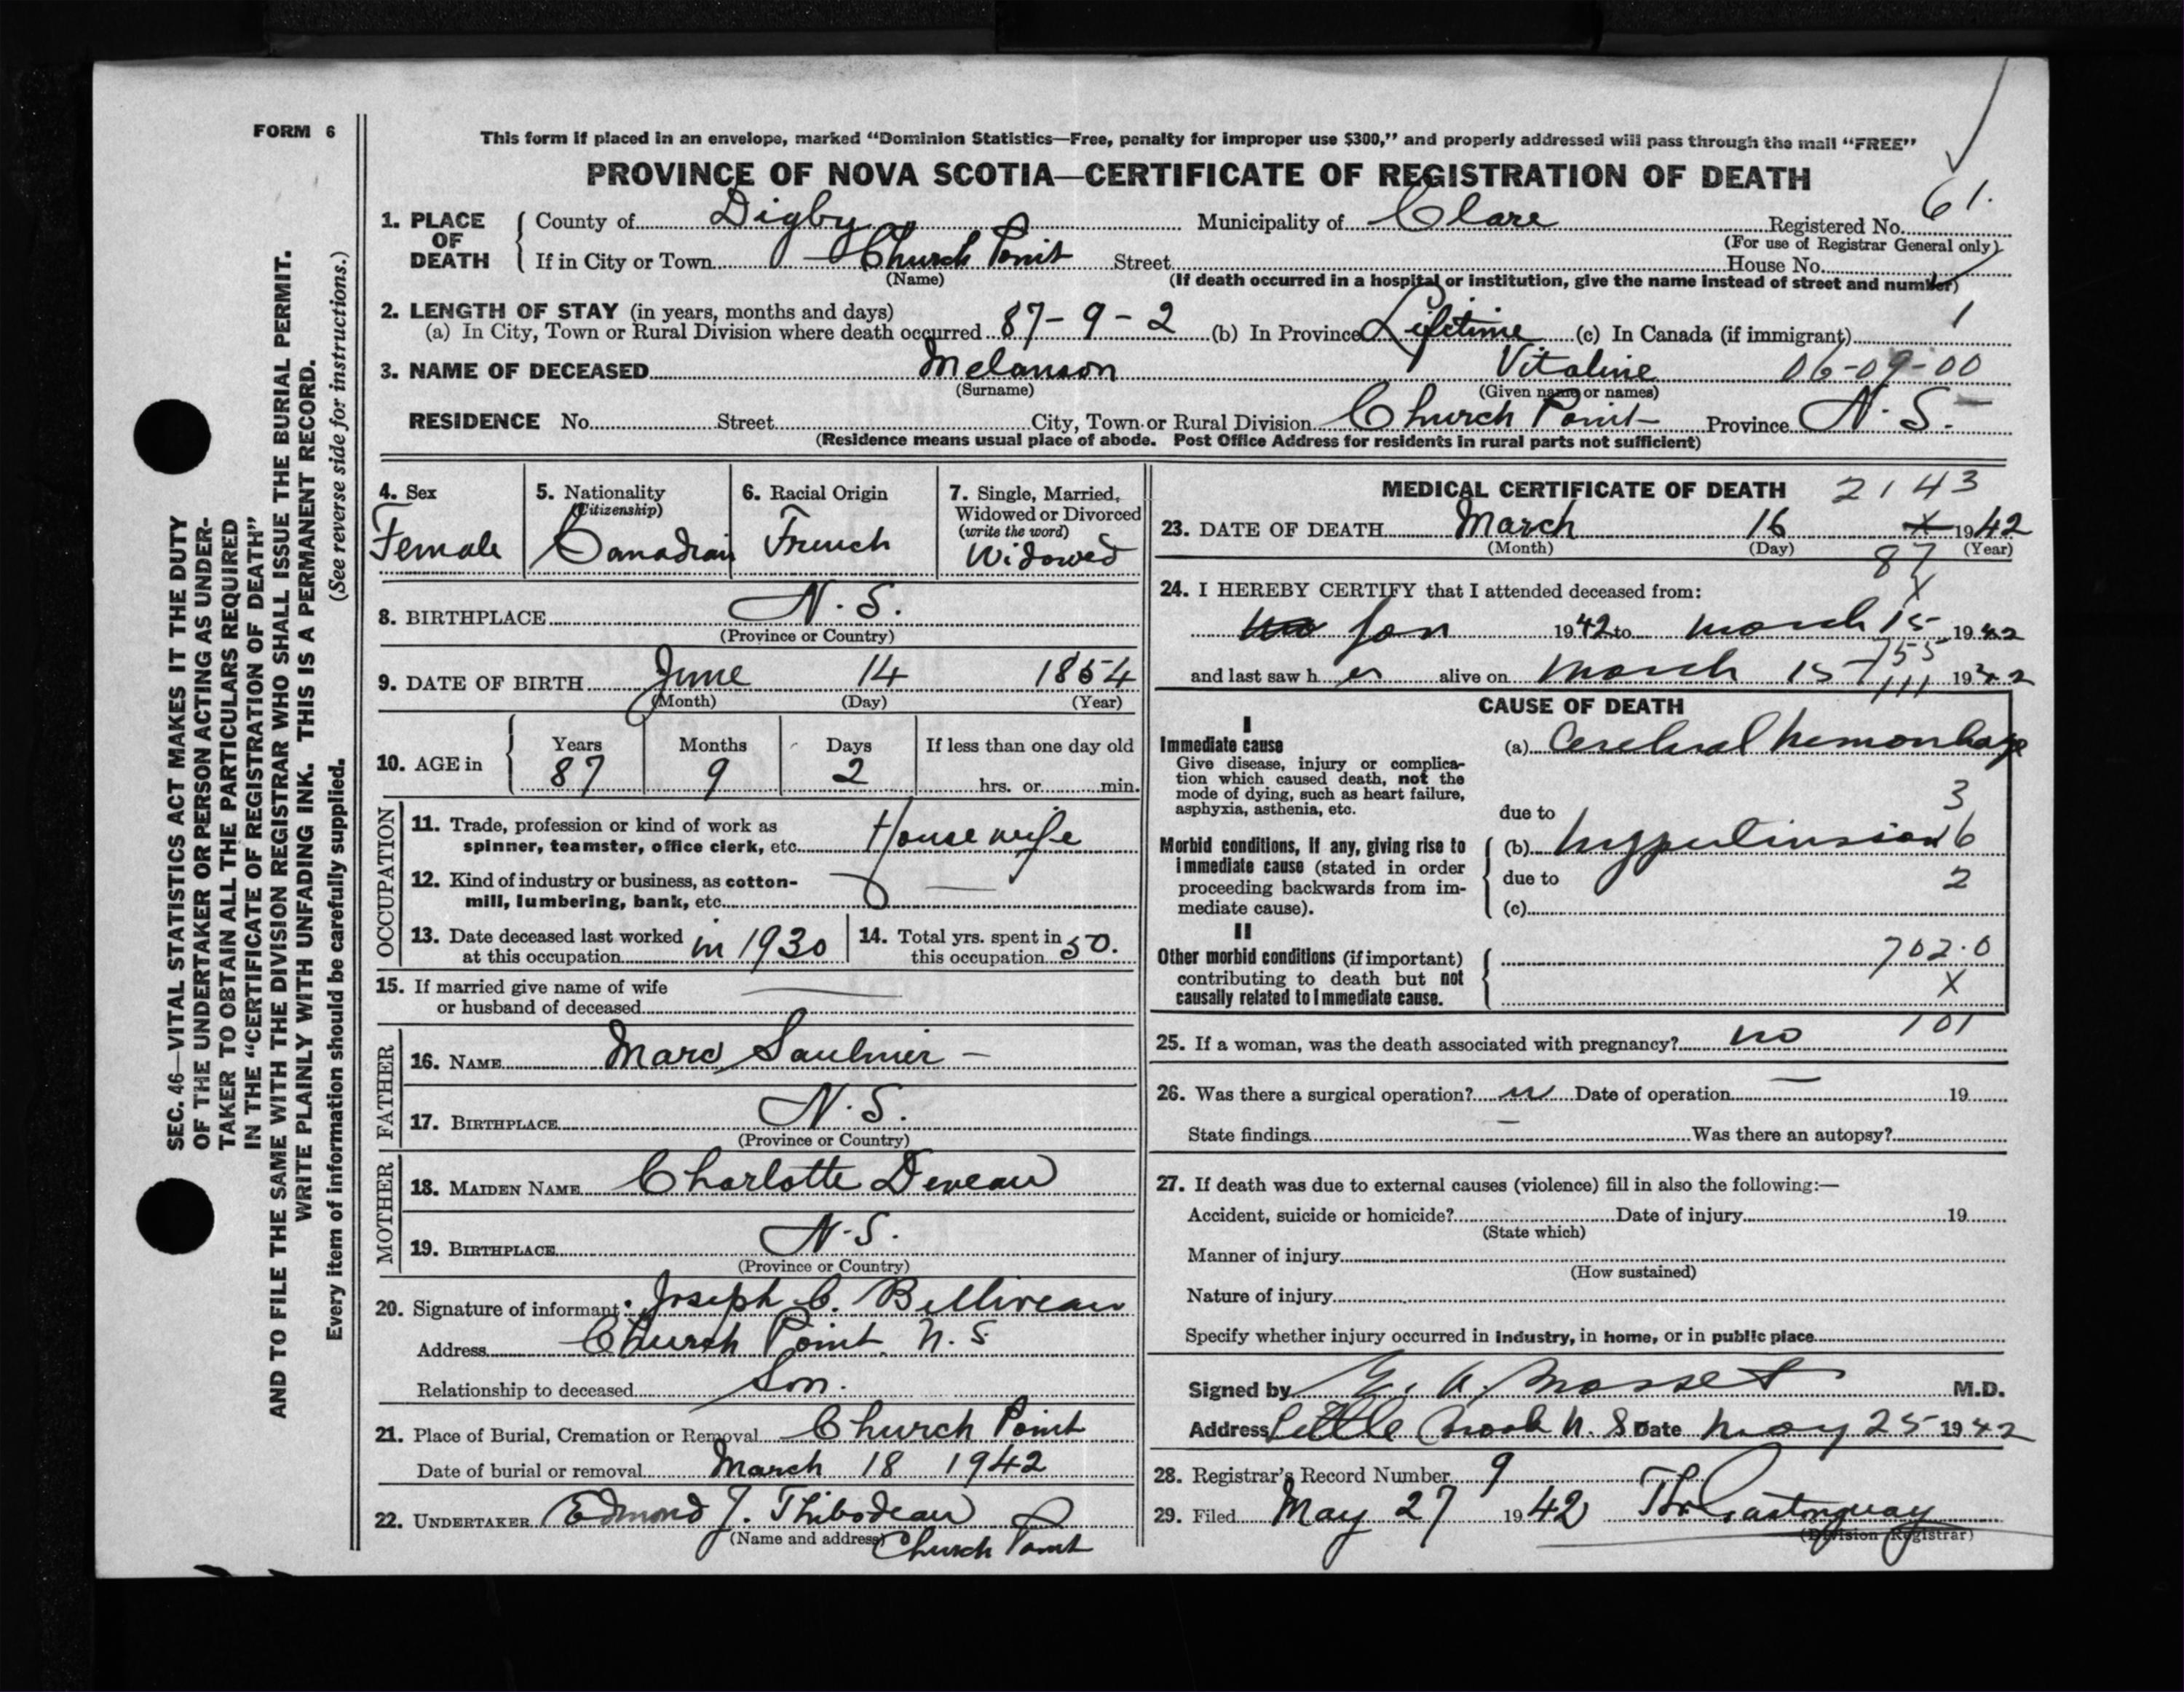 FORM 6
This form if placed in an envelope, marked "Dominion Statistics—Free, penalty for improper use $300," and properly addressed will pass through the mail "FREE"
PROVINCE OF NOVA SCOTIA—CERTIFICATE OF REGISTRATION OF DEATH
61.
1. PLACE OF DEATH
County of Digby Municipality of Clare Registered No.
(For use of Registrar General only)
If in City or Town Church Point Street House No.
(Name) (If death occurred in a hospital or institution, give the name instead of street and number)
2. LENGTH OF STAY (in years, months and days)
(a) In City, Town or Rural Division where death occurred 87-9-2 (b) In Province Lifetime (c) In Canada (if immigrant) 1
3. NAME OF DECEASED Melanson Vitaline 06-09-00
(Surname) (Given name or names)
RESIDENCE No. Street City, Town or Rural Division Church Point Province N.S.
(Residence means usual place of abode. Post Office Address for residents in rural parts not sufficient)
4. Sex
Female
5. Nationality
(Citizenship)
Canadian
6. Racial Origin
French
7. Single, Married,
Widowed or Divorced
(write the word)
Widowed
8. BIRTHPLACE N.S.
(Province or Country)
9. DATE OF BIRTH June 14 1854
(Month) (Day) (Year)
10. AGE in
Years Months Days If less than one day old
87 9 2 hrs. or min.
OCCUPATION
11. Trade, profession or kind of work as
spinner, teamster, office clerk, etc. Housewife
12. Kind of industry or business, as cotton-
mill, lumbering, bank, etc. —
13. Date deceased last worked
at this occupation in 1930
14. Total yrs. spent in
this occupation 50.
15. If married give name of wife
or husband of deceased —
FATHER
16. NAME Marc Saulnier -
17. BIRTHPLACE N.S.
(Province or Country)
MOTHER
18. MAIDEN NAME Charlotte Deveau
19. BIRTHPLACE N.S.
(Province or Country)
20. Signature of informant: Joseph C. Belliveau
Address Church Point N.S.
Relationship to deceased Son.
21. Place of Burial, Cremation or Removal Church Point
Date of burial or removal March 18 1942
22. UNDERTAKER Edmond J. Thibodeau
(Name and address) Church Point
MEDICAL CERTIFICATE OF DEATH 2143
23. DATE OF DEATH March 16 x 1942
(Month) (Day) (Year)
87
x
24. I HEREBY CERTIFY that I attended deceased from:
Jan 1942 to March 15 1942
155
and last saw her alive on March 15 1942
111
CAUSE OF DEATH
I
Immediate cause
Give disease, injury or complica-
tion which caused death, not the
mode of dying, such as heart failure,
asphyxia, asthenia, etc.
(a) Cerebral hemorrhage
3
due to
Morbid conditions, if any, giving rise to
immediate cause (stated in order
proceeding backwards from im-
mediate cause).
(b) hypertension 6
due to 2
(c)
II
Other morbid conditions (if important)
contributing to death but not
causally related to immediate cause.
702.0
X
101
25. If a woman, was the death associated with pregnancy? no
26. Was there a surgical operation? Date of operation — 19
State findings - Was there an autopsy?
27. If death was due to external causes (violence) fill in also the following:—
Accident, suicide or homicide? Date of injury 19
(State which)
Manner of injury
(How sustained)
Nature of injury
Specify whether injury occurred in industry, in home, or in public place
Signed by M.D.
Address Little Brook N.S Date May 25 1942
28. Registrar's Record Number 9
29. Filed May 27 1942
(Division Registrar)
SEC. 46—VITAL STATISTICS ACT MAKES IT THE DUTY
OF THE UNDERTAKER OR PERSON ACTING AS UNDER-
TAKER TO OBTAIN ALL THE PARTICULARS REQUIRED
IN THE "CERTIFICATE OF REGISTRATION OF DEATH"
AND TO FILE THE SAME WITH THE DIVISION REGISTRAR WHO SHALL ISSUE THE BURIAL PERMIT.
WRITE PLAINLY WITH UNFADING INK. THIS IS A PERMANENT RECORD.
Every item of information should be carefully supplied. (See reverse side for instructions.)